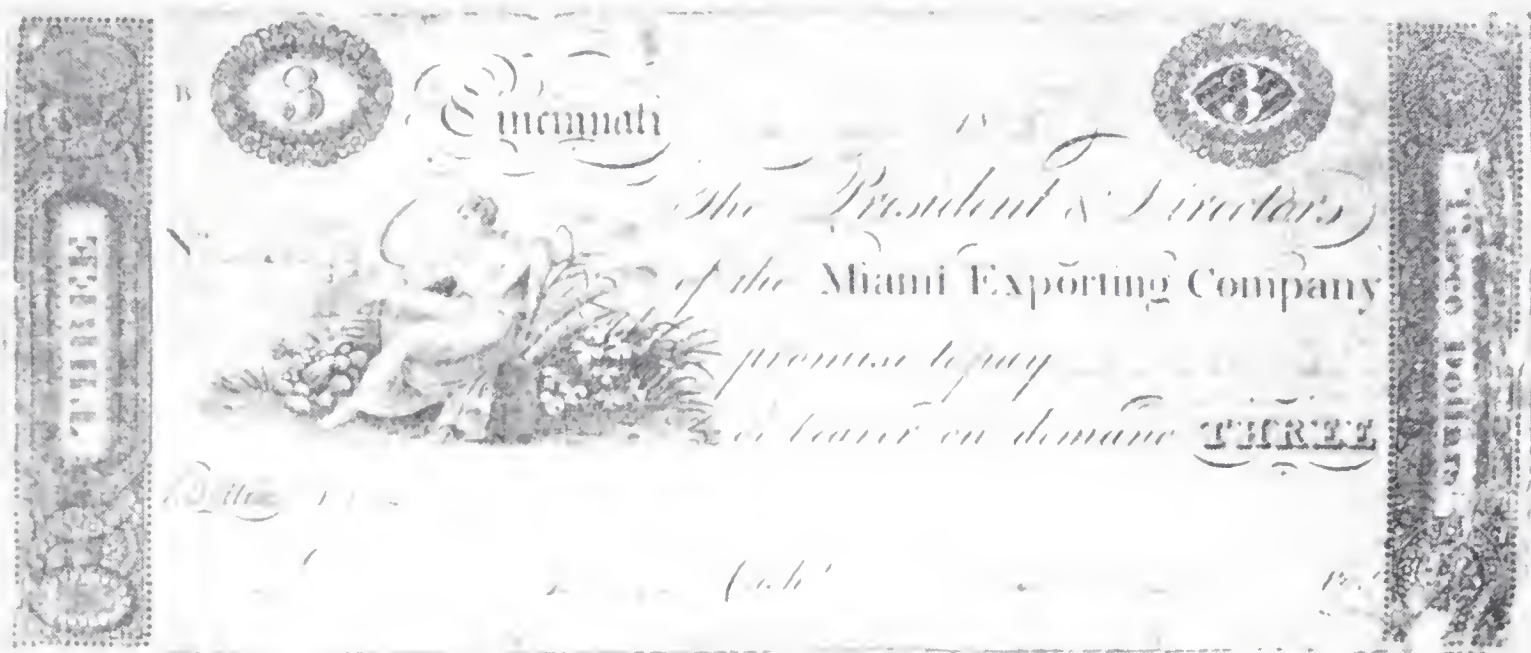 THREE
B
3
Cincinnati
3
The President & Directors
of the Miami Exporting Company
promise to pay
or bearer on demand THREE
Cash.r
Three Dollars